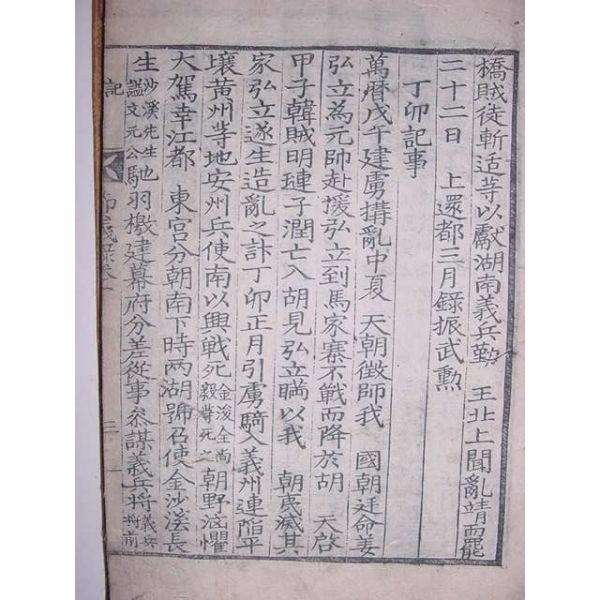 橋賊徒斬适等以獻湖南義兵勤 王北上聞亂靖而罷
二十二日 上還都三月錄振武勲
丁卯記事
萬曆戊午建虜搆亂中夏 天朝徵師我 國朝廷命姜
弘立為元帥赴援弘立到馬家寨不戰而降於胡 天啓
甲子韓賊明璉子潤亡入胡見弘立瞞以我 朝夷滅其
家弘立遂生造亂之計丁卯正月引虜騎入義州連陷平
壤黃州等地安州兵使南以興戰死金浚全尚毅等死之朝野洶懼
大駕幸江都 東宮分朝南下時两湖號召使金沙溪長
生沙溪先生也謚文元公馳羽檄建幕府分差從事參謀義兵將義兵將前
記 義錄卷一 三